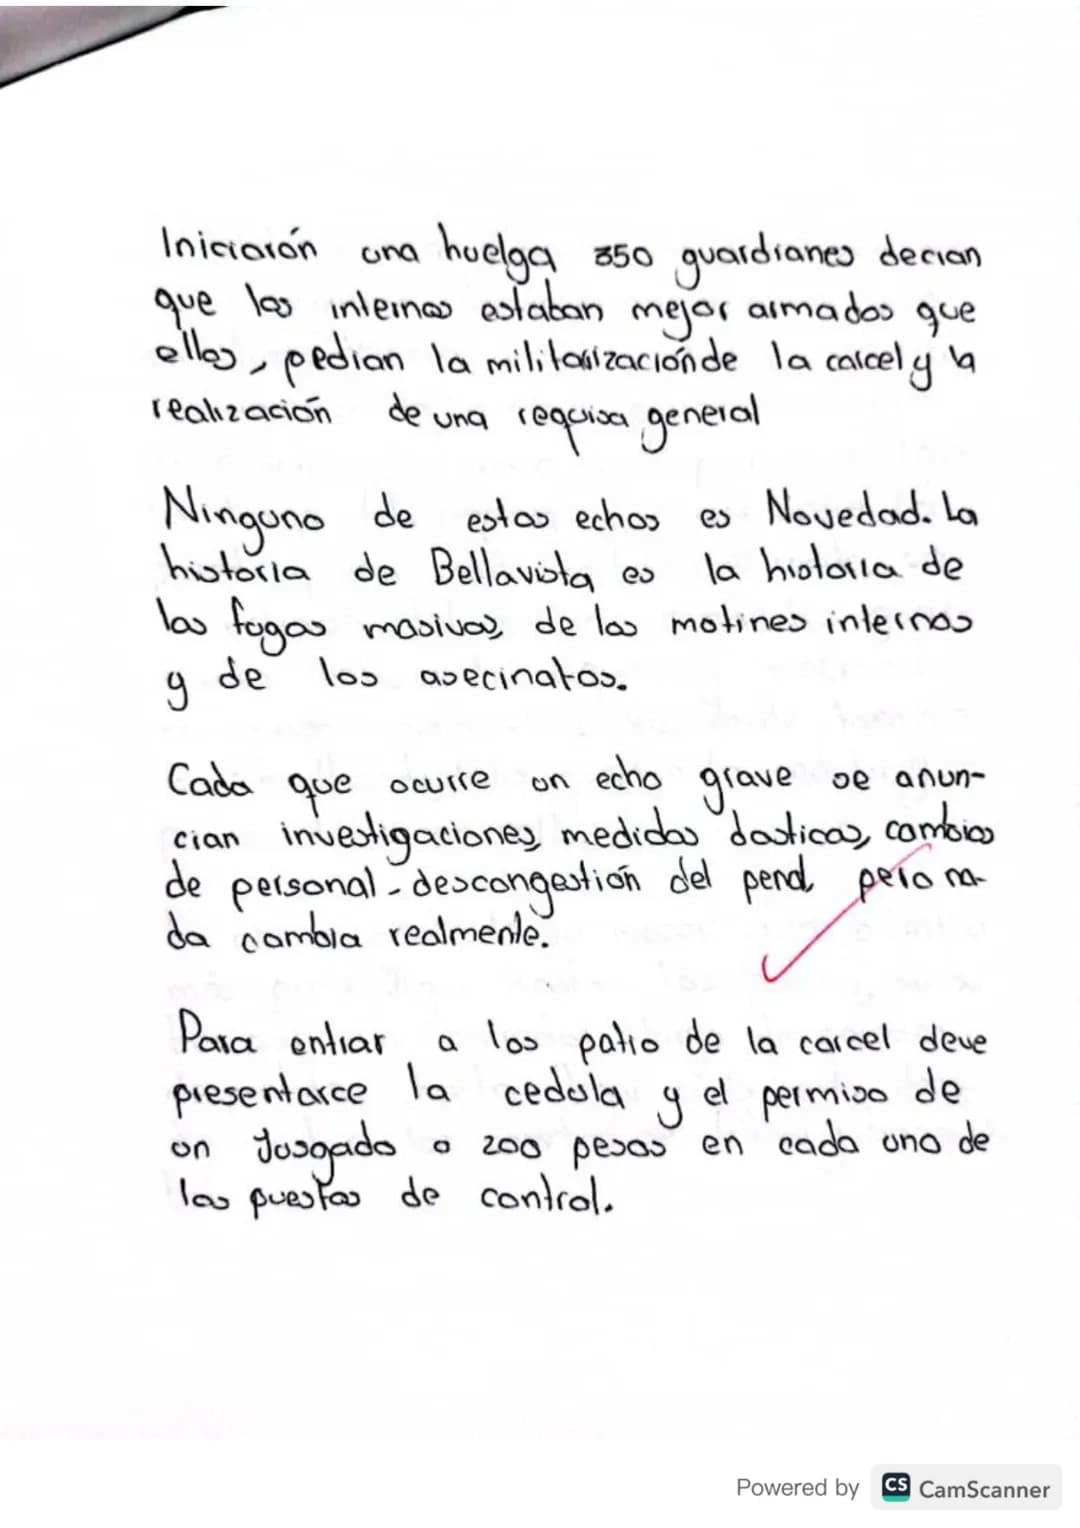 Iniciarón una huelga 350 guardianes decian
que los internos estaban mejor armados que
ellos, pedian la militarizaciónde la carcel y la
realización de una requisa general
Ninguno de estos echos es Novedad. La
historia de Bellavista es la historia de
las fugas masivas, de los motines internos
y de los asecinatos.
Cada que ocurre un echo grave se anun-
cian investigaciones, medidas dasticas, cambios
de personal - descongestión del penal pero na-
da cambia realmente.
Para entrar a los patio de la carcel deve
presentarce la cedula y el permiso de
un Jusgado o 200 pesos en cada uno de
los puestos de control.
Powered by CS CamScanner